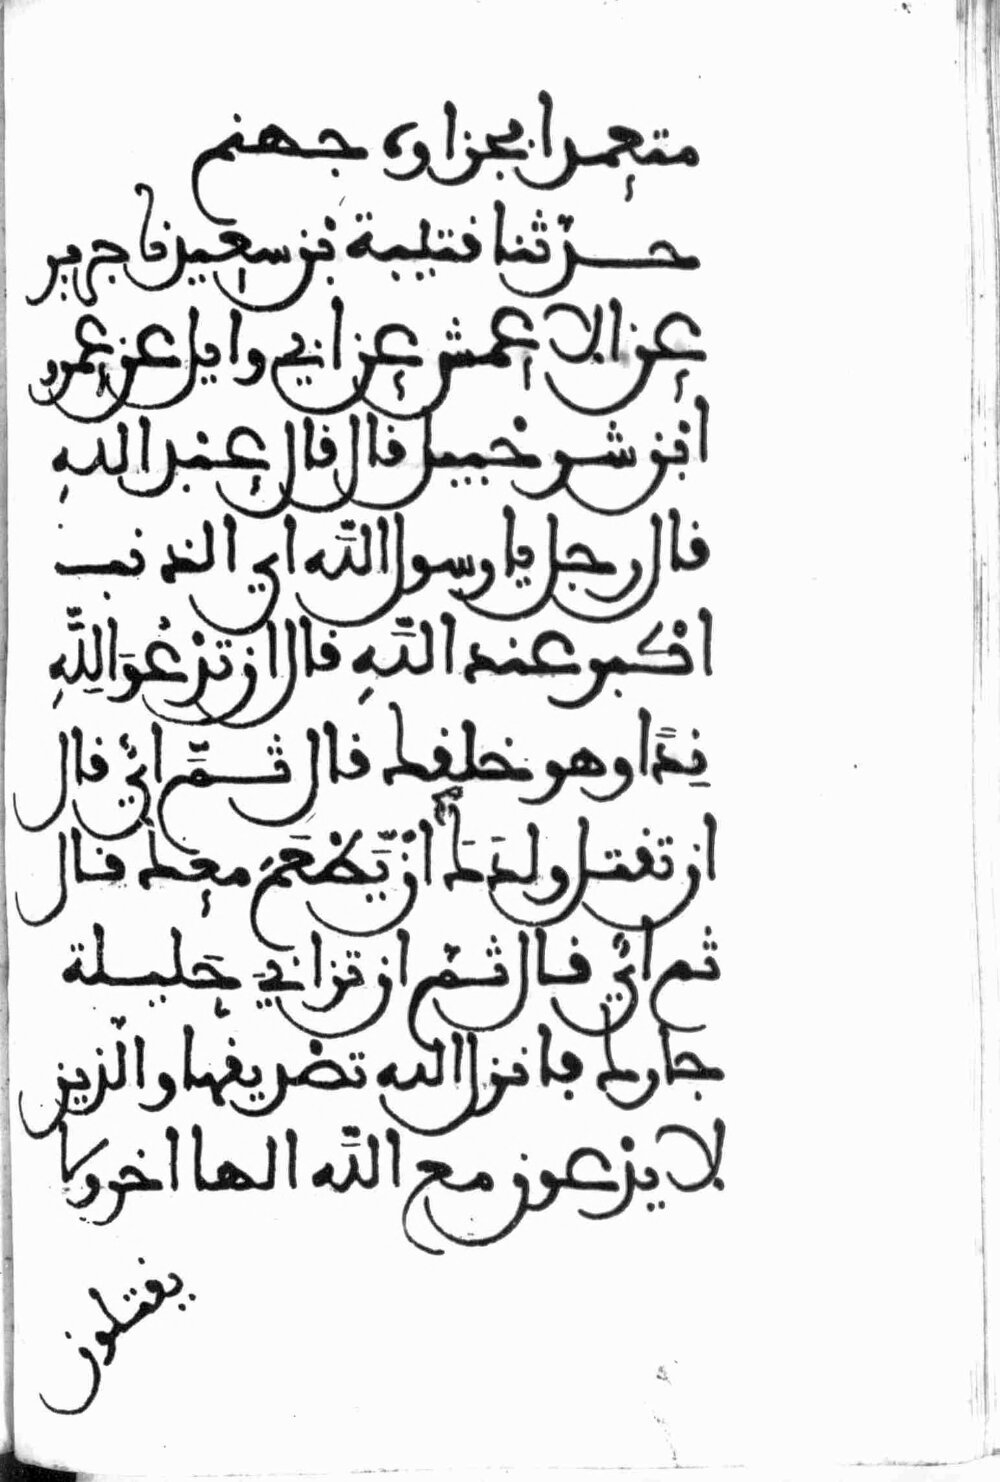 متعمدا فجزاوه جهنم
حدّثنا قتيبة بن سعيد نا جرير
عن الاعمش عن ابي وايل عن عمرو
ابن شرحبيل قال قال عبد اللهِ
قال رجل يا رسول اللّه اي الذنب
اكْبر عند اللّهِ قال ان تدْعُوَ لِلَّهِ
نِدًّا وهو خلقك قال ثمّ ايٌ قال
ان تقتل ولدَكَ انْ يَّطْعَمَ معك قال
ثم ايٌ قال ثمّ ان تزانيَ حَليلة
جارك فانزل الله تصْديقها والّذين
لا يدْعون مع اللّه الها اخر ولا
يقتلون